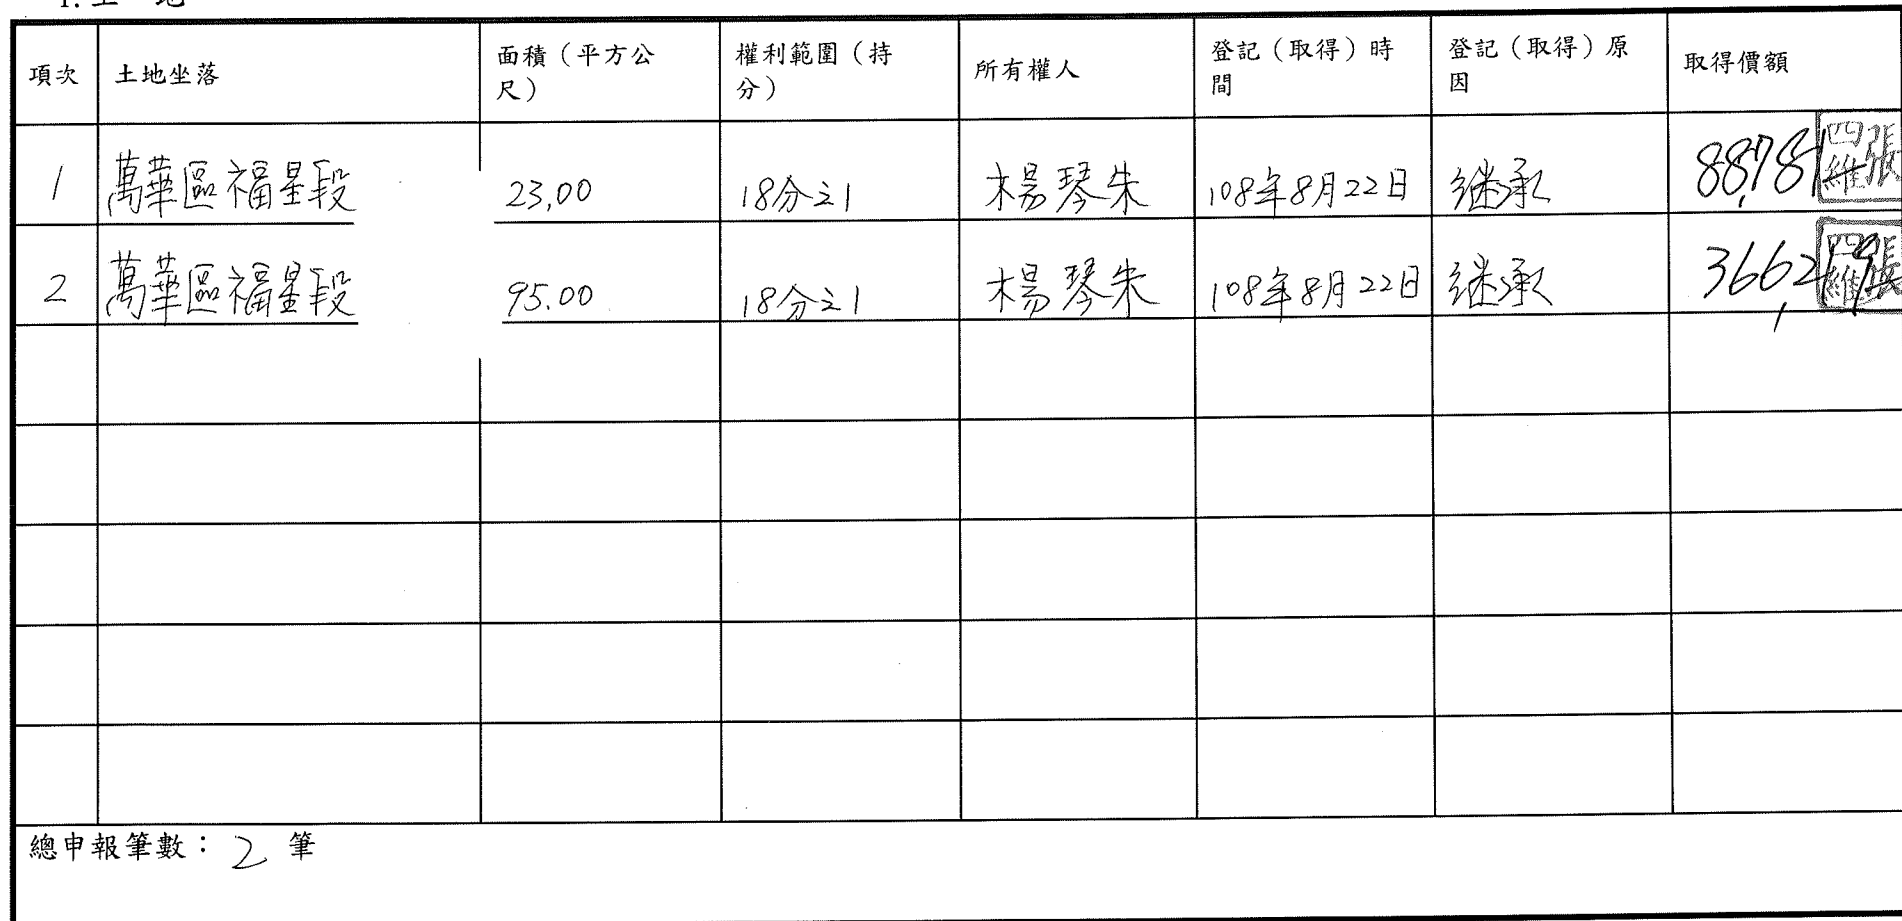 1.土 地
項次 土地坐落 面積（平方公尺） 權利範圍（持分） 所有權人 登記（取得）時間 登記（取得）原因 取得價額
1 萬華區福星段 23,00 18分之1 楊琴朱 108年8月22日 继承 88,781 張四維
2 萬華區福星段 95.00 18分之1 楊琴朱 108年8月22日 继承 366,219 張四維
總申報筆數：2 筆